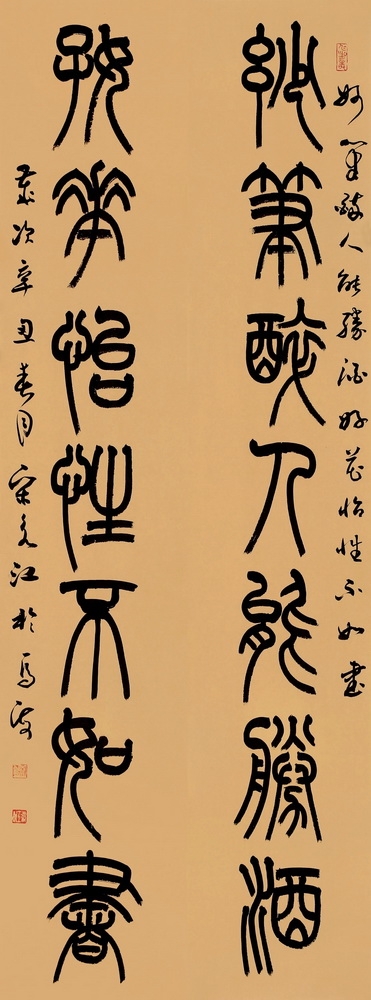 妙筆醉人能勝酒好花怡性不如書
妙筆醉人能勝酒
好花怡性不如書
歲次辛丑春月宋江於